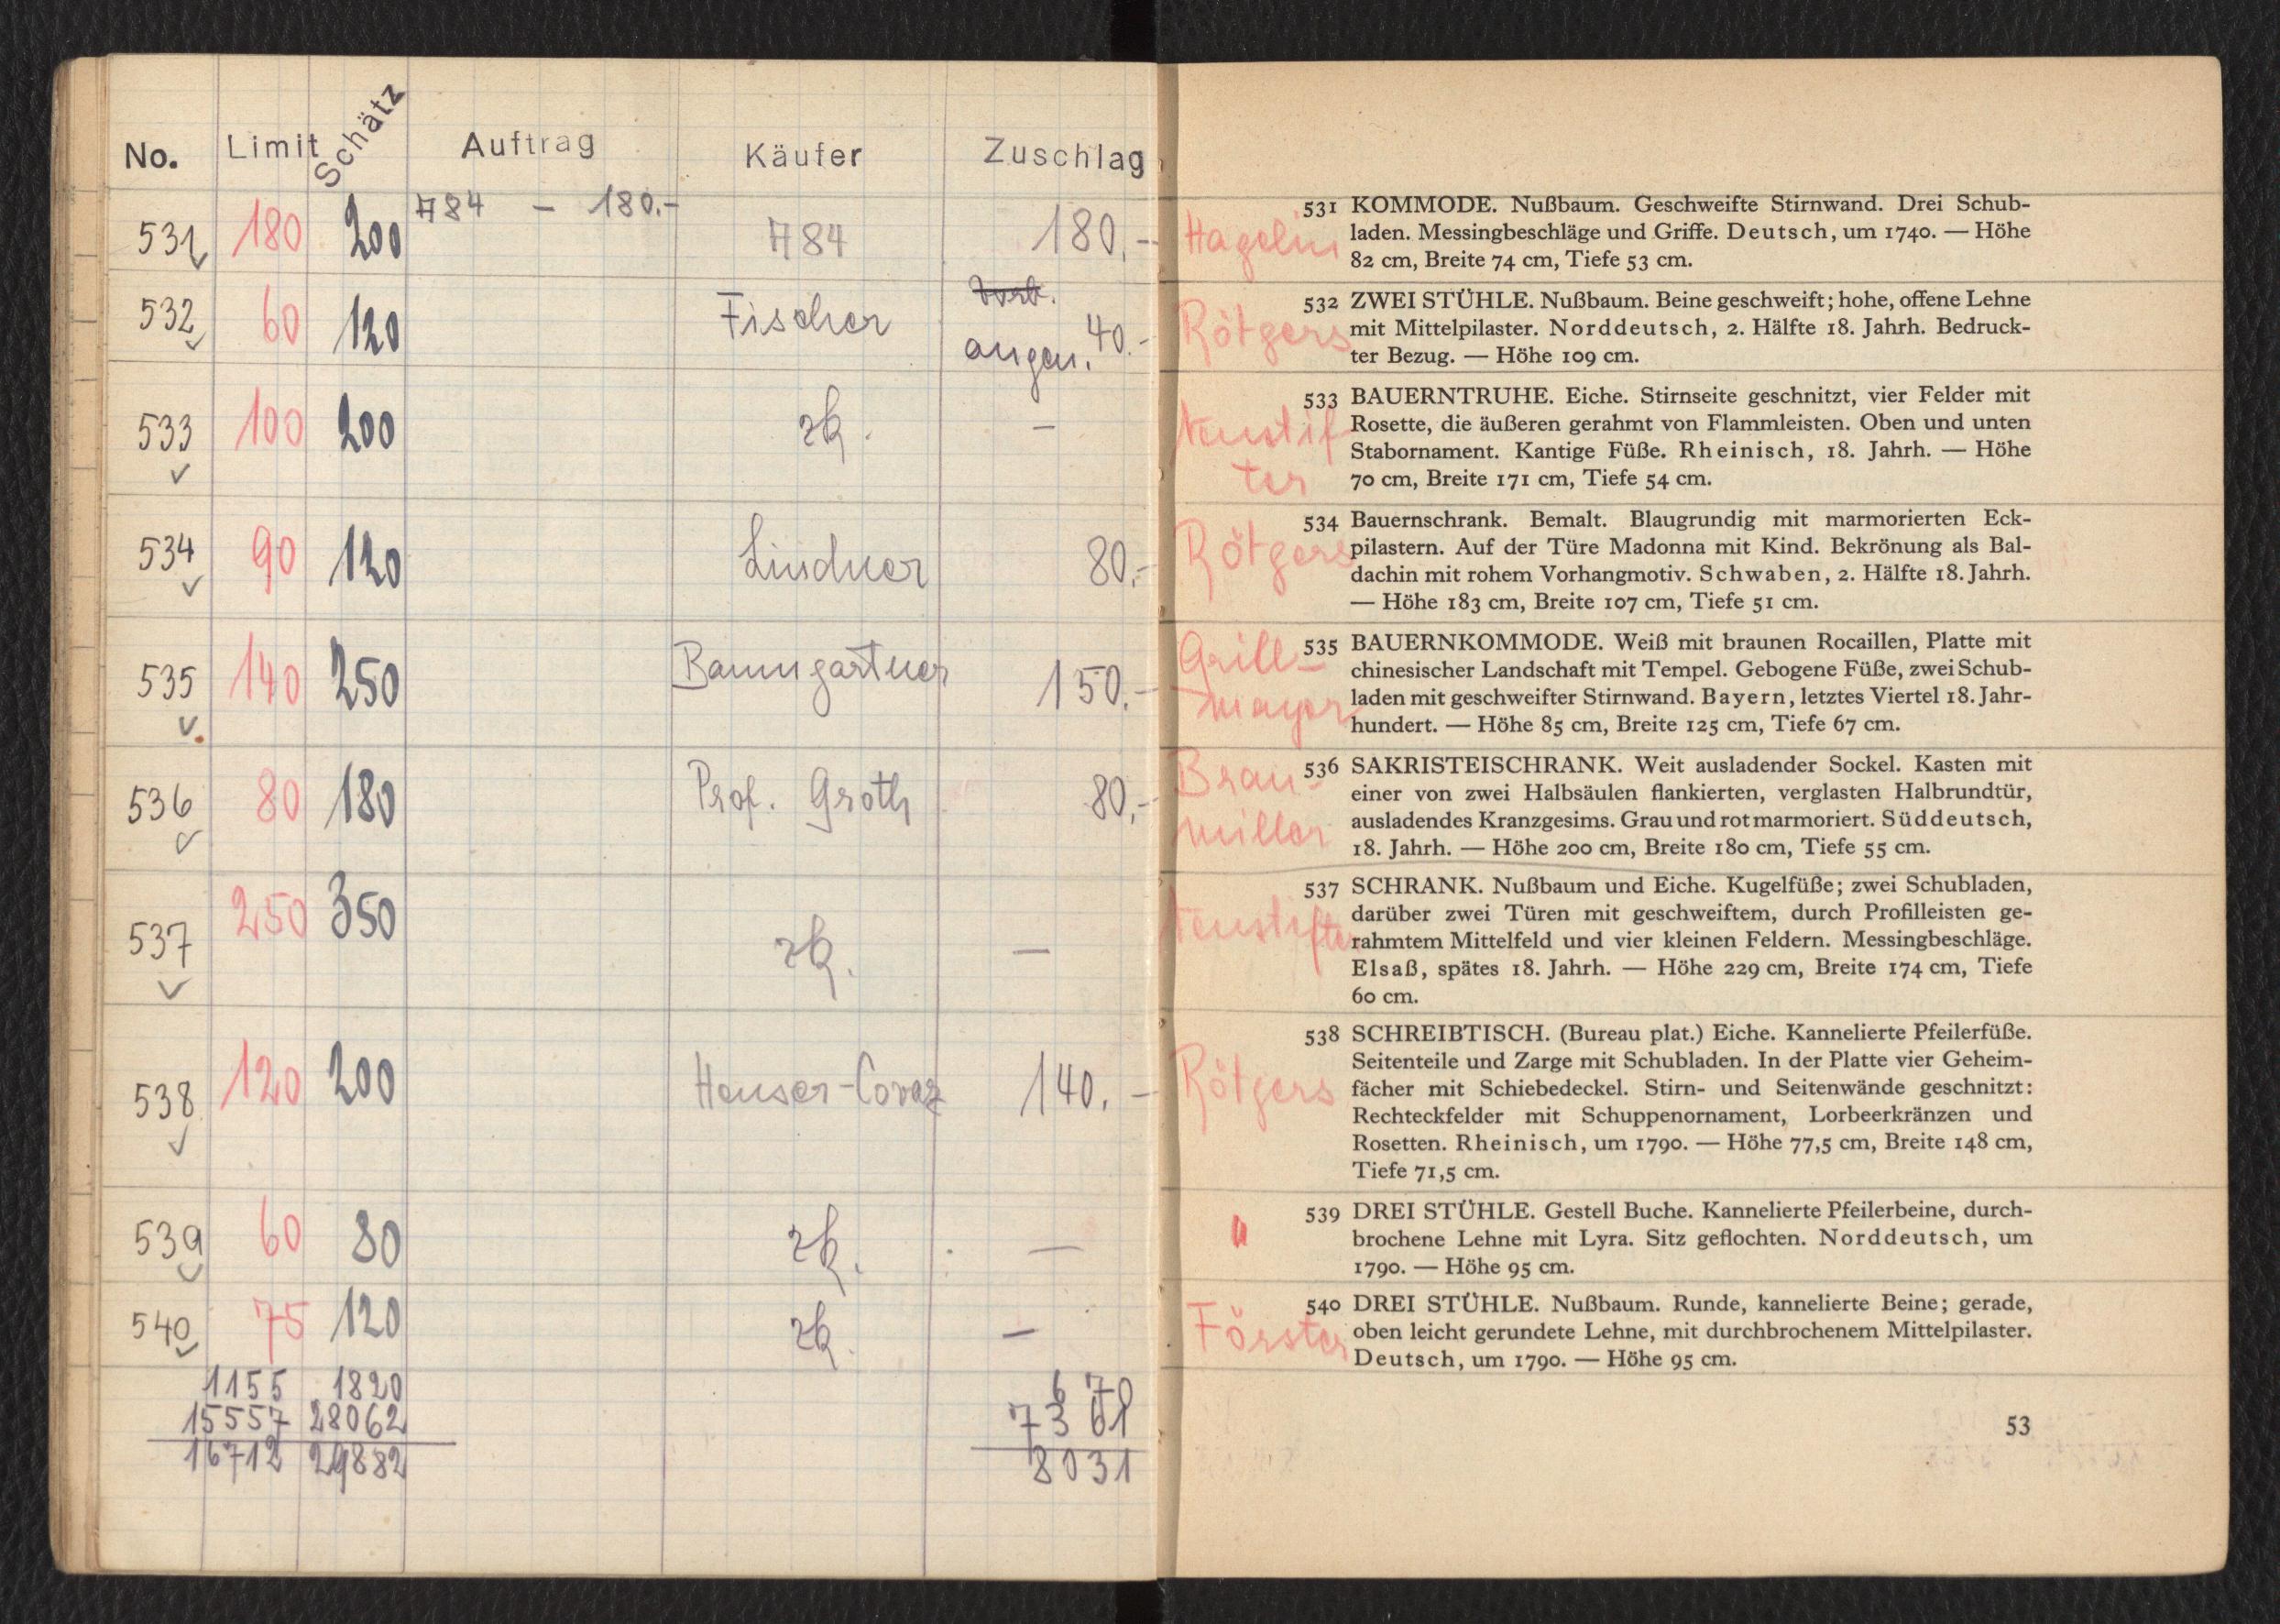 No. Limit Schätz Auftrag Käufer Zuschlag
784 – 180.-
531 180 200 784 180.-
532 60 120 Fischer
angen. 40.-
533 100 200 zk. –
534 90 120 Lindner 80.-
535 140 250 Baumgartner 150.-
536 80 180 Prof. Groth 80.-
537 250 350 zk. –
538 120 200 140.-
539 60 80 zk. –
540 75 120 zk. –
1155 1820 670
15557 28062 7361
16712 29882 8031
Hagelin
531 KOMMODE. Nußbaum. Geschweifte Stirnwand. Drei Schub-
laden. Messingbeschläge und Griffe. Deutsch, um 1740. — Höhe
82 cm, Breite 74 cm, Tiefe 53 cm.
Rötgers
532 ZWEI STÜHLE. Nußbaum. Beine geschweift; hohe, offene Lehne
mit Mittelpilaster. Norddeutsch, 2. Hälfte 18. Jahrh. Bedruck-
ter Bezug. — Höhe 109 cm.
Neustif
ter
533 BAUERNTRUHE. Eiche. Stirnseite geschnitzt, vier Felder mit
Rosette, die äußeren gerahmt von Flammleisten. Oben und unten
Stabornament. Kantige Füße. Rheinisch, 18. Jahrh. — Höhe
70 cm, Breite 171 cm, Tiefe 54 cm.
Rötgers
534 Bauernschrank. Bemalt. Blaugrundig mit marmorierten Eck-
pilastern. Auf der Türe Madonna mit Kind. Bekrönung als Bal-
dachin mit rohem Vorhangmotiv. Schwaben, 2. Hälfte 18. Jahrh.
— Höhe 183 cm, Breite 107 cm, Tiefe 51 cm.
Grill-
mayer
535 BAUERNKOMMODE. Weiß mit braunen Rocaillen, Platte mit
chinesischer Landschaft mit Tempel. Gebogene Füße, zwei Schub-
laden mit geschweifter Stirnwand. Bayern, letztes Viertel 18. Jahr-
hundert. — Höhe 85 cm, Breite 125 cm, Tiefe 67 cm.
Brau-
miller
536 SAKRISTEISCHRANK. Weit ausladender Sockel. Kasten mit
einer von zwei Halbsäulen flankierten, verglasten Halbrundtür,
ausladendes Kranzgesims. Grau und rot marmoriert. Süddeutsch,
18. Jahrh. — Höhe 200 cm, Breite 180 cm, Tiefe 55 cm.
Neustifter
537 SCHRANK. Nußbaum und Eiche. Kugelfüße; zwei Schubladen,
darüber zwei Türen mit geschweiftem, durch Profilleisten ge-
rahmtem Mittelfeld und vier kleinen Feldern. Messingbeschläge.
Elsaß, spätes 18. Jahrh. — Höhe 229 cm, Breite 174 cm, Tiefe
60 cm.
Rötgers
538 SCHREIBTISCH. (Bureau plat.) Eiche. Kannelierte Pfeilerfüße.
Seitenteile und Zarge mit Schubladen. In der Platte vier Geheim-
fächer mit Schiebedeckel. Stirn- und Seitenwände geschnitzt:
Rechteckfelder mit Schuppenornament, Lorbeerkränzen und
Rosetten. Rheinisch, um 1790. — Höhe 77,5 cm, Breite 148 cm,
Tiefe 71,5 cm.
"
539 DREI STÜHLE. Gestell Buche. Kannelierte Pfeilerbeine, durch-
brochene Lehne mit Lyra. Sitz geflochten. Norddeutsch, um
1790. — Höhe 95 cm.
Förster
540 DREI STÜHLE. Nußbaum. Runde, kannelierte Beine; gerade,
oben leicht gerundete Lehne, mit durchbrochenem Mittelpilaster.
Deutsch, um 1790. — Höhe 95 cm.
53